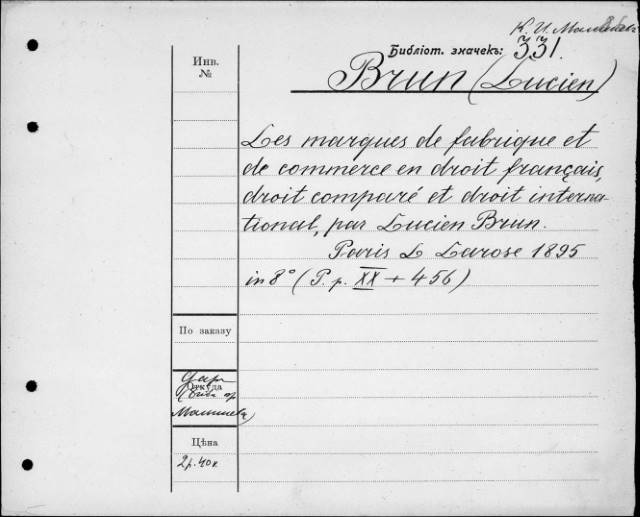 К. И.
Библіот. значекъ: 331.
Инв.
№
Brun (Lucien)
Les marques de fabrique et
de commerce en droit français,
droit comparé et droit interna-
tional, par Lucien Brun.
Paris L Larose 1895
in 8° (P. p. XX + 456)
По заказу
Даръ
Откуда
Цѣна
2 р. 40 к